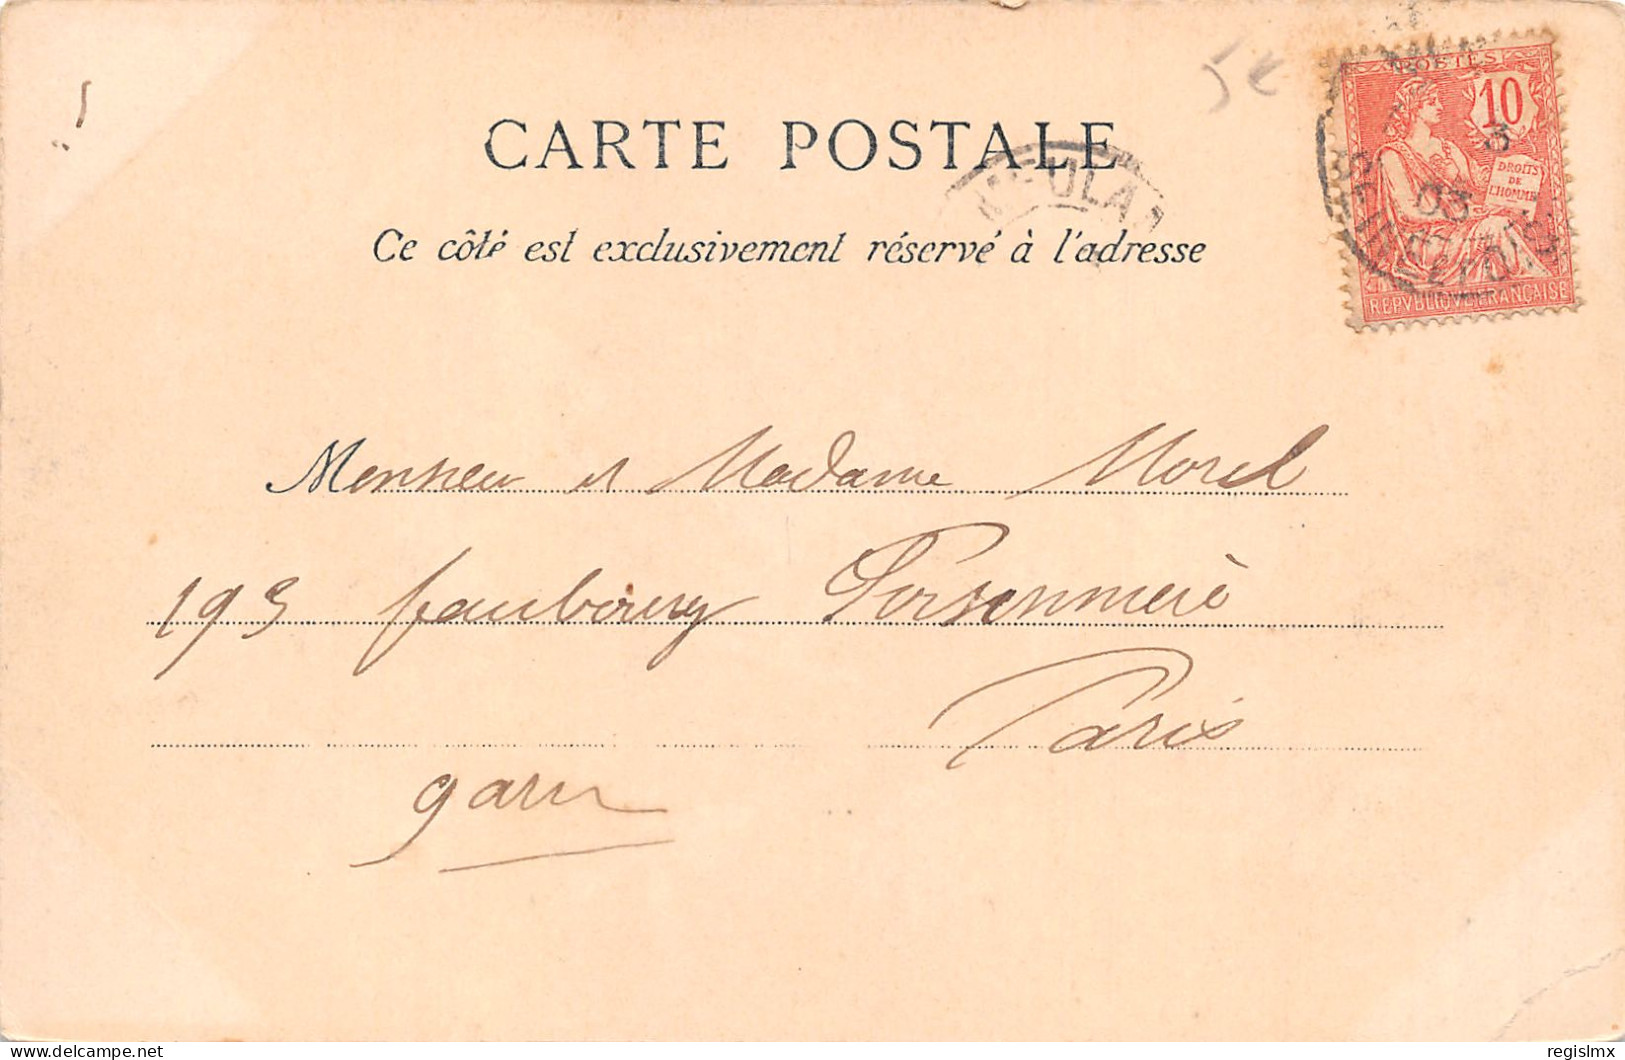 5€
POSTES
10
DROITS
DE
L'HOMME
3
03
REPVBLIQVE FRANÇAISE
CARTE POSTALE
Ce côté est exclusivement réservé à l'adresse
Monsieur et Madame Morel
193 faubourg Poissonnière
Paris
gare
delcampe.net
regislmx